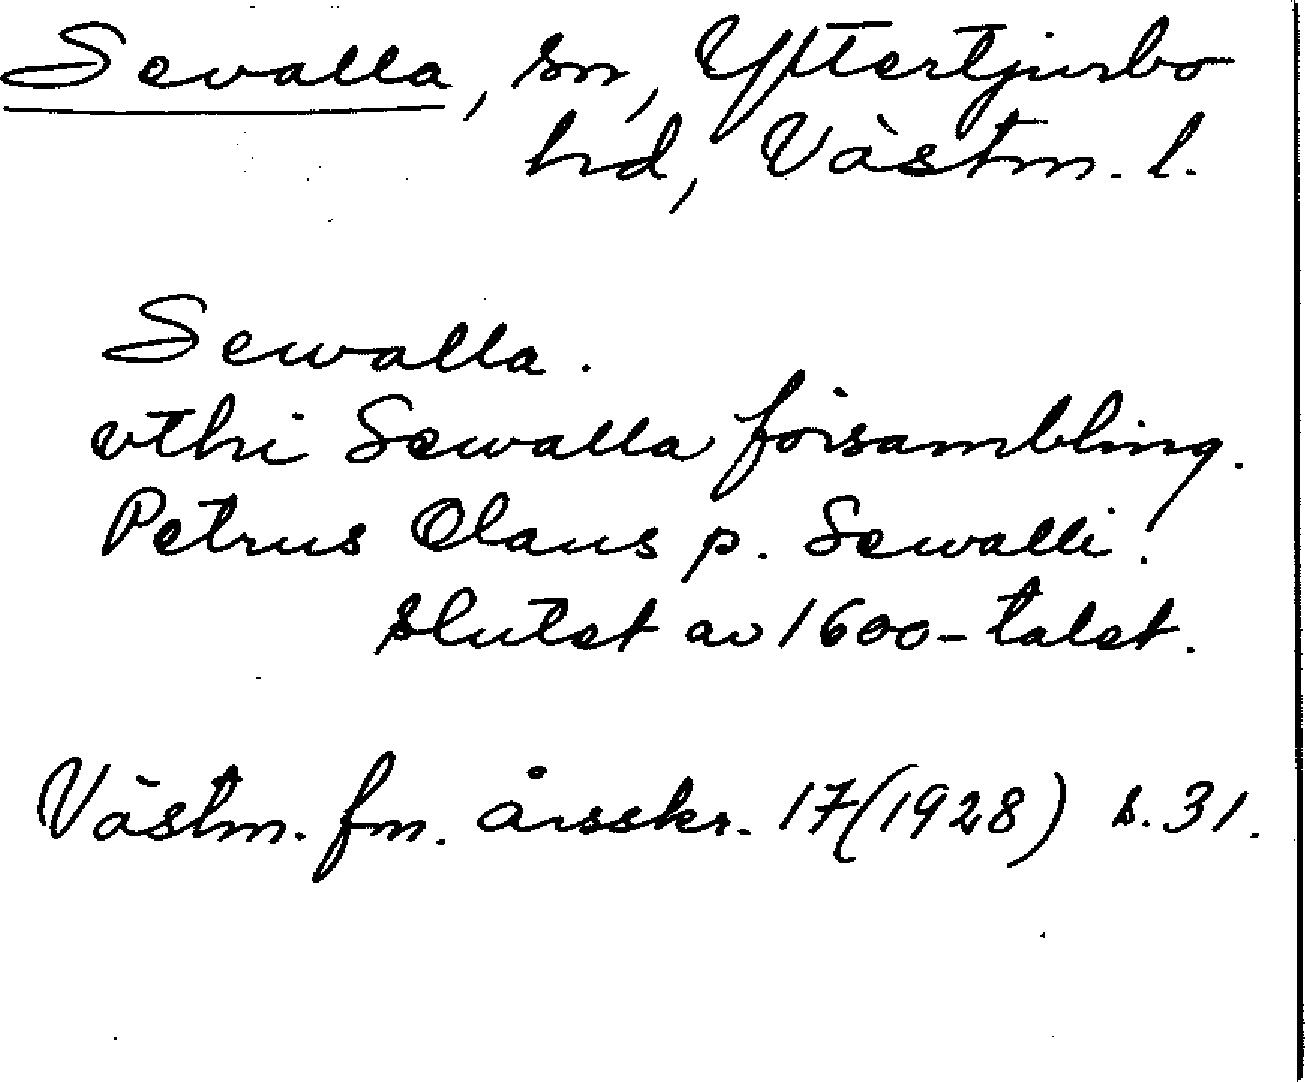 Sevalla, sn, Yttertjurbo
hd, Västm. l.
Sewalla.
vthi Sewalla försambling.
Petrus Olaus p. Sewalli.
slutet av 1600-talet.
Västm. fm. årsskr. 17 (1928) s. 31.